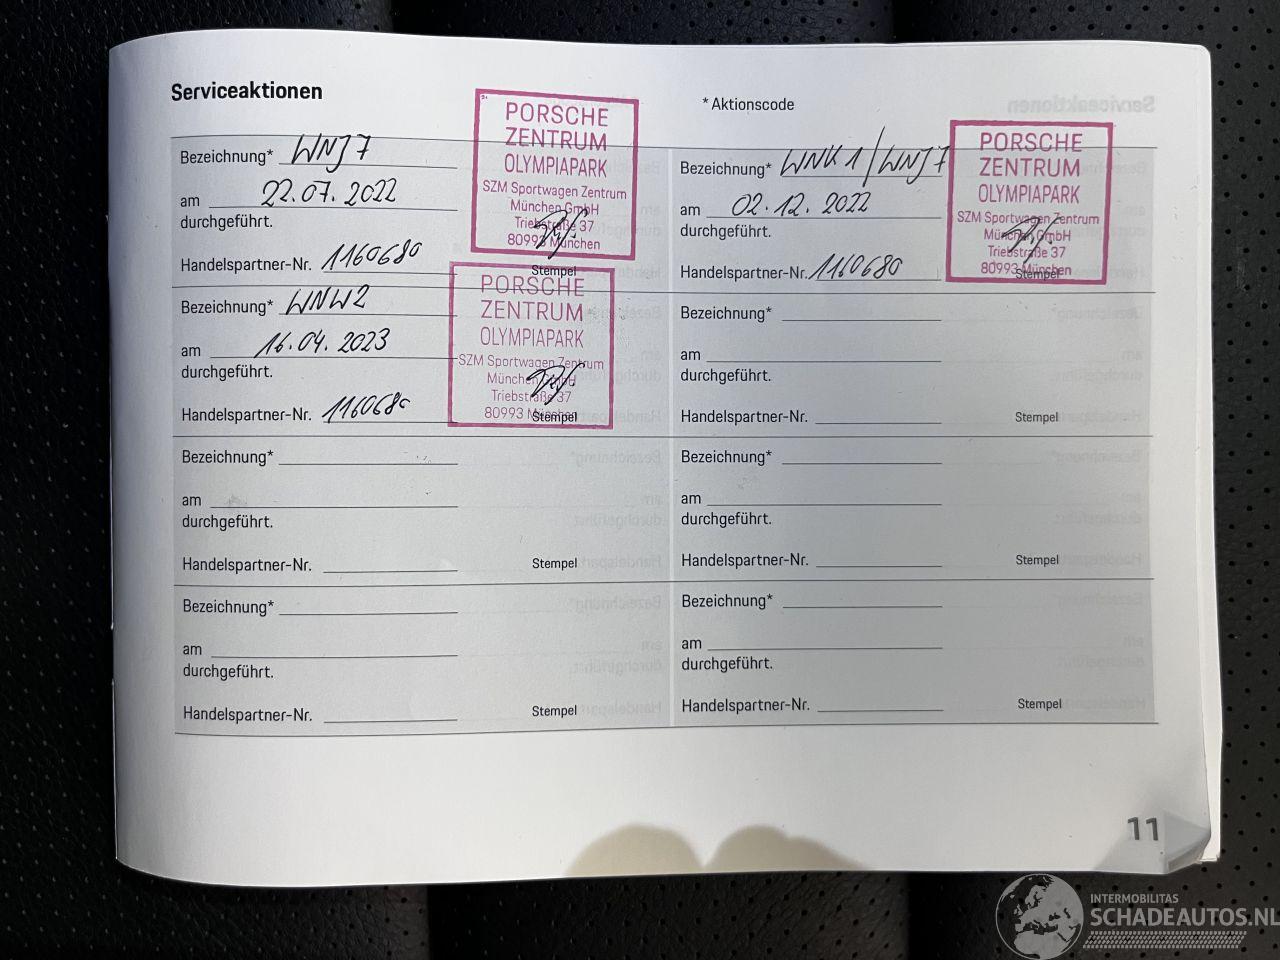 Serviceaktionen
* Aktionscode
Bezeichnung* WNJ7
am 22.07.2022
durchgeführt.
Handelspartner-Nr. 1160680
PORSCHE
ZENTRUM
OLYMPIAPARK
SZM Sportwagen Zentrum
München GmbH
Triebstraße 37
80993 München
Stempel
Bezeichnung* WNK1/WNJ7
am 02.12.2022
durchgeführt.
Handelspartner-Nr. 1160680
PORSCHE
ZENTRUM
OLYMPIAPARK
SZM Sportwagen Zentrum
München GmbH
Triebstraße 37
80993 München
Stempel
Bezeichnung* WNW2
am 16.04.2023
durchgeführt.
Handelspartner-Nr. 1160680
PORSCHE
ZENTRUM
OLYMPIAPARK
SZM Sportwagen Zentrum
München GmbH
Triebstraße 37
80993 München
Stempel
Bezeichnung*
am
durchgeführt.
Handelspartner-Nr.
Stempel
Bezeichnung*
am
durchgeführt.
Handelspartner-Nr.
Stempel
Bezeichnung*
am
durchgeführt.
Handelspartner-Nr.
Stempel
Bezeichnung*
am
durchgeführt.
Handelspartner-Nr.
Stempel
Bezeichnung*
am
durchgeführt.
Handelspartner-Nr.
Stempel
11
INTERMOBILITAS
SCHADEAUTOS.NL